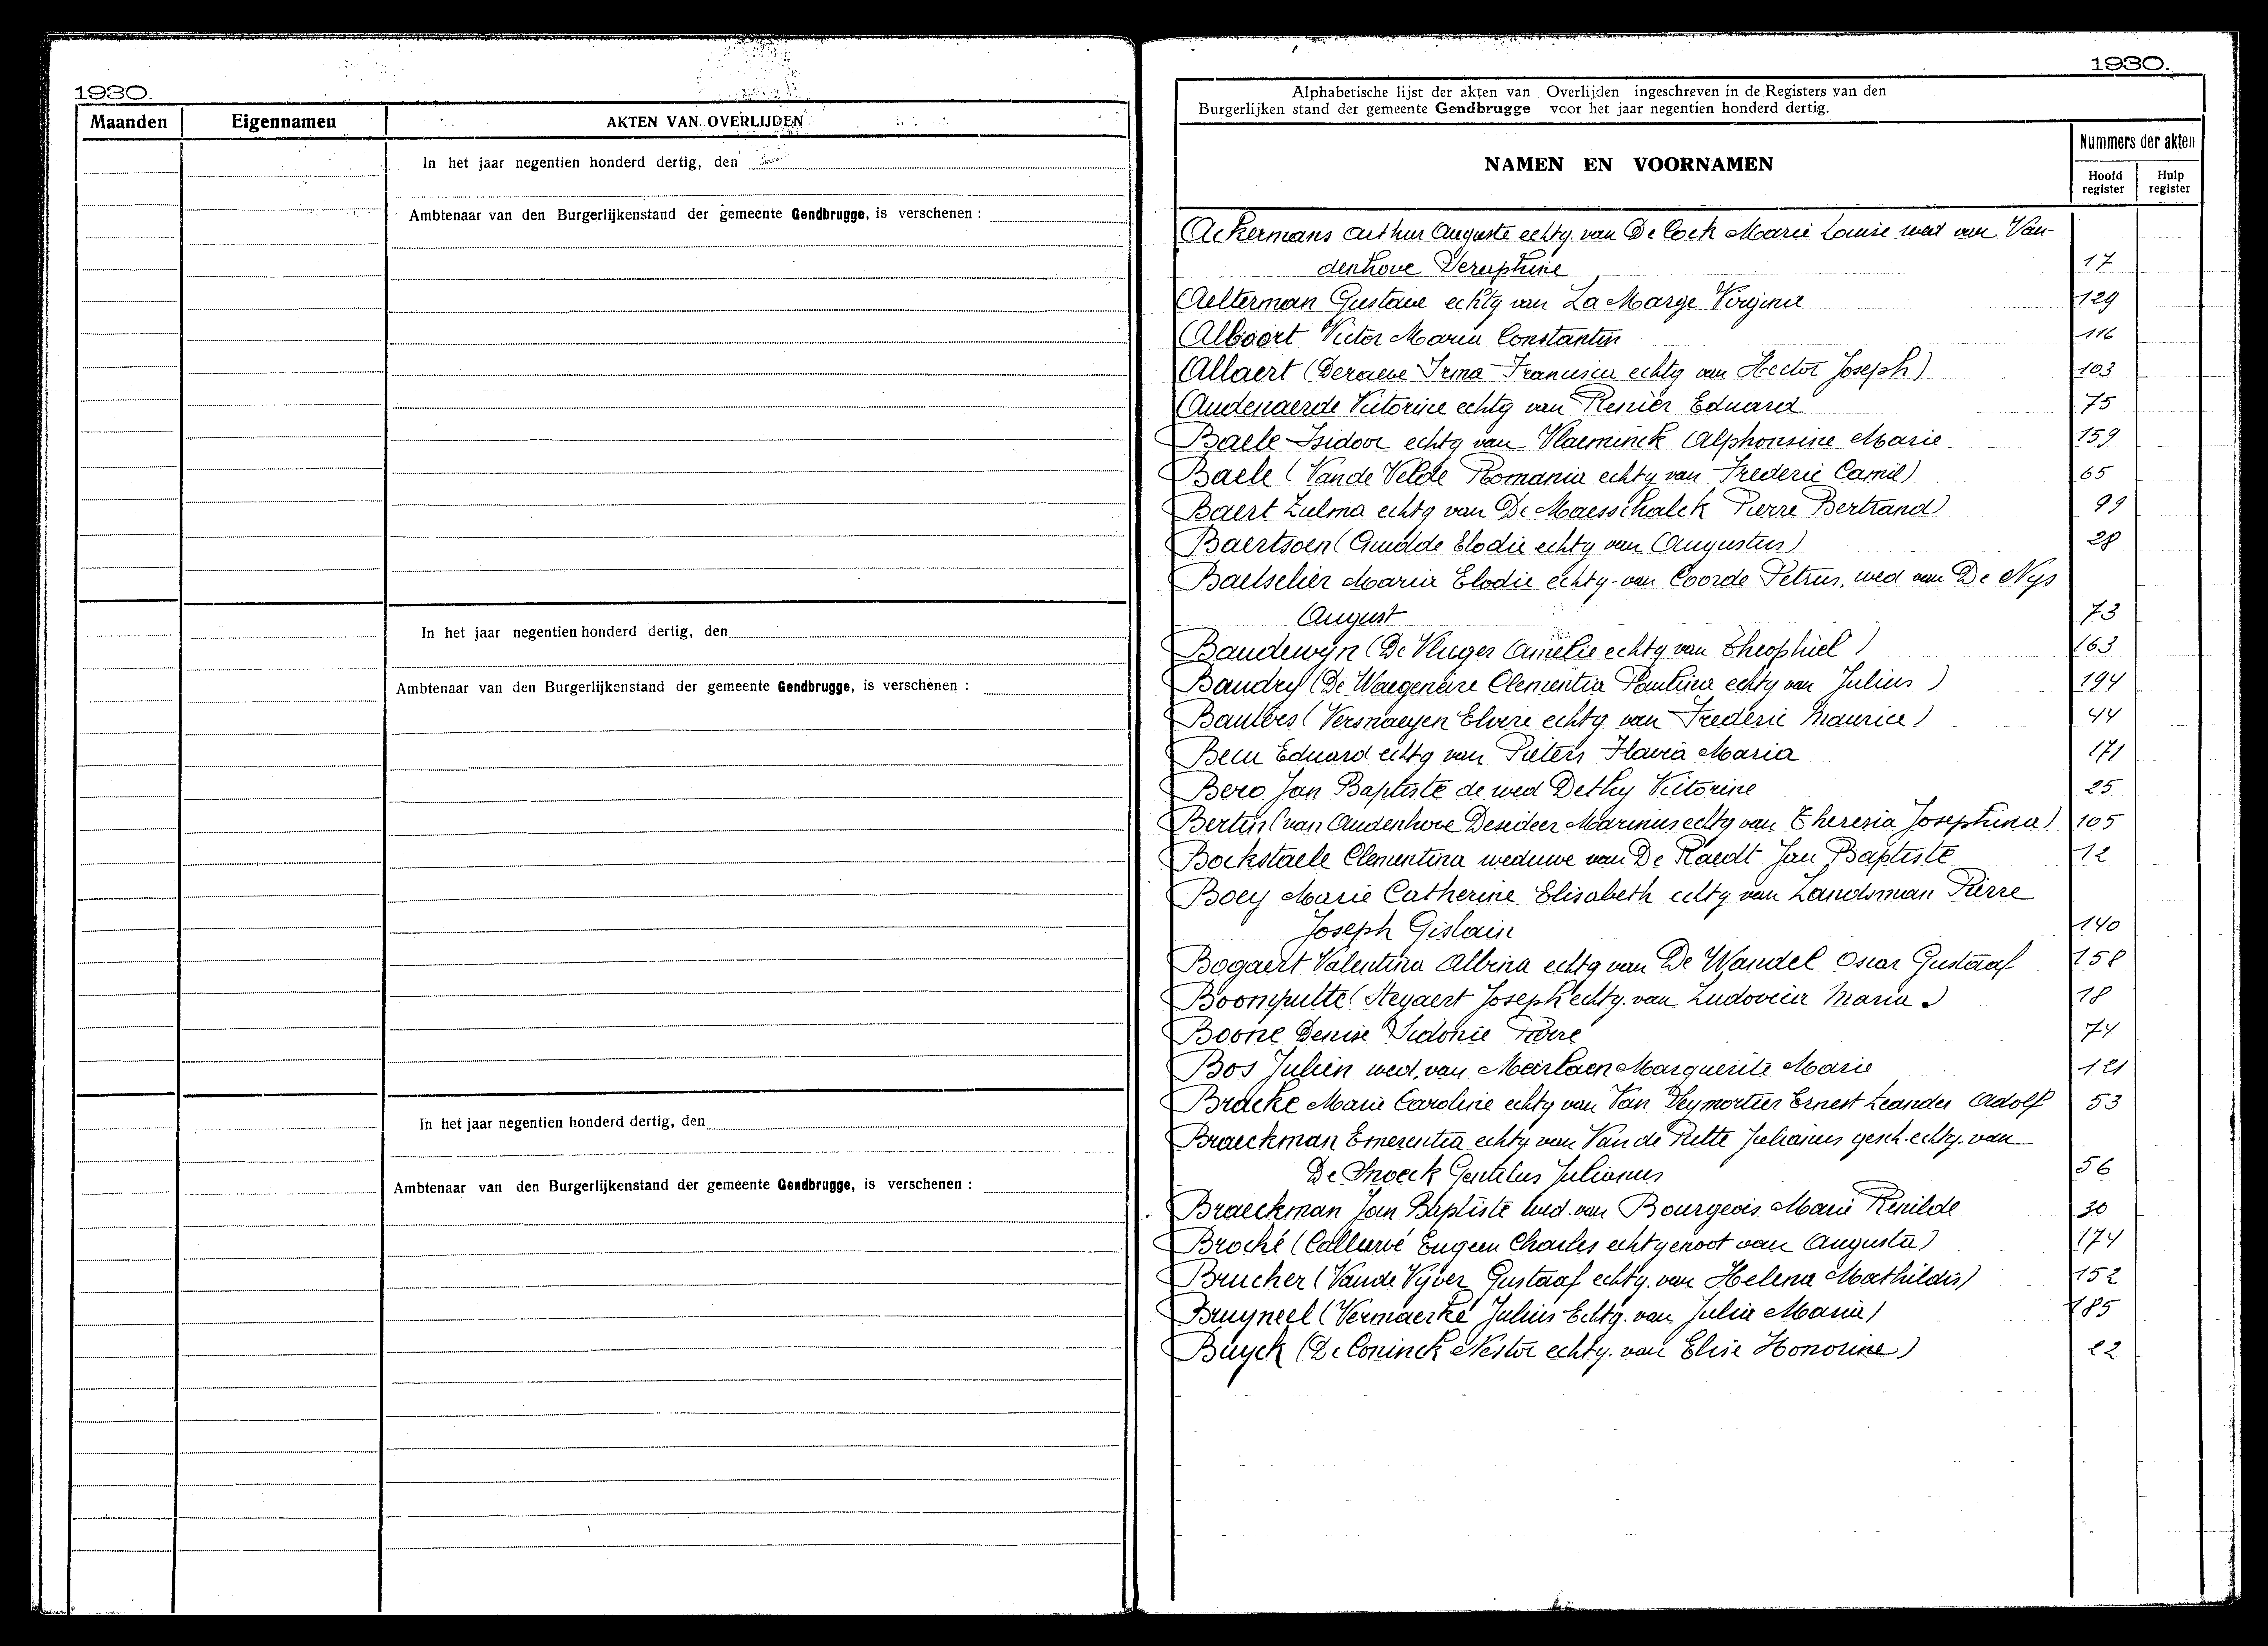 1930.
Maanden Eigennamen AKTEN VAN OVERLIJDEN
In het jaar negentien honderd dertig, den
Ambtenaar van den Burgerlijkenstand der gemeente Gendbrugge, is verschenen :
In het jaar negentien honderd dertig, den
Ambtenaar van den Burgerlijkenstand der gemeente Gendbrugge, is verschenen :
In het jaar negentien honderd dertig, den
Ambtenaar van den Burgerlijkenstand der gemeente Gendbrugge, is verschenen :
1930.
Alphabetische lijst der akten van Overlijden ingeschreven in de Registers van den
Burgerlijken stand der gemeente Gendbrugge voor het jaar negentien honderd dertig.
NAMEN EN VOORNAMEN
Nummers der akten
Hoofd register Hulp register
Ackermans Arthur Auguste echtg. van De Cock Marie Louise wed van Van-
denhove 17
Aelterman Gustave echtg van La Marge Virginie 129
Alboort Victor Maria Constantin 116
Allaert (Deraeve Irma Francisca echtg van Hector Joseph) 103
Audenaerde Victorine echtg van Renier Eduard 75
Baele Isidoor echtg van Vlaeminck Alphonsine Marie 159
Baele (Van de Velde Romania echtg van Frederic Camil) 65
Baert Zulma echtg van De Maesschalck Pierre Bertrand) 99
Baertsoen (Elodie echtg van Augustus) 28
Baetselier Maria Elodie echtg. van Coorde Petrus, wed van De Nys
August 73
Baudewyn (De Vluger Amelie echtg van Theophiel) 163
Baudry (De Waegenaire Clementia Paulina echtg van Julius) 194
Bauters (Versnaeyen Elvire echtg. van Frederic Maurice) 44
Becu Eduard echtg van Pieters Flavia Maria 171
Bero Jan Baptiste de wed Dethy Victorine 25
Bertin (van Audenhove Desideer Marinus echtg van Theresia Josephina) 105
Bockstaele Clementina weduwe van De Raedt Jan Baptiste 12
Boey Marie Catherine Elisabeth echtg van Landsman Pierre
Joseph Gislain 140
Bogaert Valentina Albina echtg van De Wandel Oscar Gustaaf 158
Boomputte (Steyaert Joseph echtg. van Ludovica Maria) 18
Boone Denise Sidonie Pierre 74
Bos Julien wed. van Meirlaen Marguerite Marie 121
Bracke Marie Caroline echtg van Van Deymortier Ernest Leander Adolf 53
Braeckman Emerentia echtg van Van de Putte Julianus gesch. echtg. van
De Snoeck Gentilus Julianus 56
Braeckman Jan Baptiste wed. van Bourgeois Marie Renilde 30
Broché (Callewé Eugeen Charles echtgenoot van Augusta) 174
Brucher (Van de Vyver Gustaaf echtg. van Helena Mathildis) 152
Bruyneel (Vermaerke Julius Echtg. van Julia Maria) 185
Buyck (De Coninck Nestor echtg. van Elise Honorine) 22